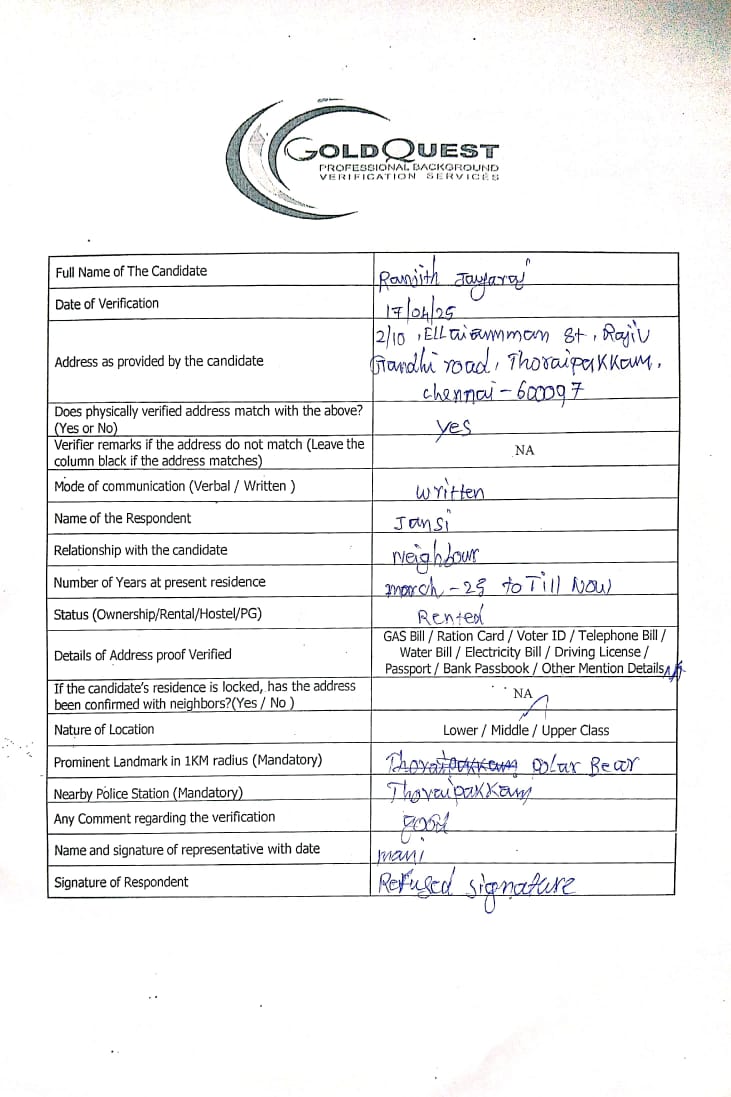 GOLDQUEST
PROFESSIONAL BACKGROUND
VERIFICATION SERVICES
Full Name of The Candidate
Ranjith Jayaraj
Date of Verification
17/04/25
Address as provided by the candidate
2/10, Ellaiamman St, Rajiv
Gandhi road, Thoraipakkam,
chennai - 600097
Does physically verified address match with the above?
(Yes or No)
yes
Verifier remarks if the address do not match (Leave the
column black if the address matches)
NA
Mode of communication (Verbal / Written )
written
Name of the Respondent
Jansi
Relationship with the candidate
Neighbour
Number of Years at present residence
march - 25 to Till Now
Status (Ownership/Rental/Hostel/PG)
Rented
Details of Address proof Verified
GAS Bill / Ration Card / Voter ID / Telephone Bill /
Water Bill / Electricity Bill / Driving License /
Passport / Bank Passbook / Other Mention Details NA
If the candidate's residence is locked, has the address
been confirmed with neighbors?(Yes / No )
NA
Nature of Location
Lower / Middle / Upper Class
Prominent Landmark in 1KM radius (Mandatory)
Polar Bear
Nearby Police Station (Mandatory)
Thoraipakkam
Any Comment regarding the verification
good
Name and signature of representative with date
mani
Signature of Respondent
Refused signature